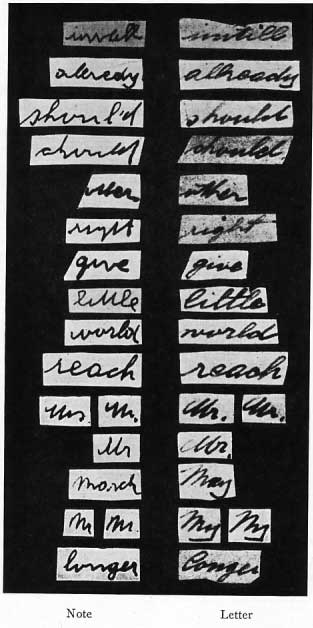 instill
already allready
should should
should should
other other
right right
give give
little little
world world
reach reach
Mrs. Mr. Mr. Mr.
Mr Mr.
March May
M Mr. My My
longer longer
Note Letter